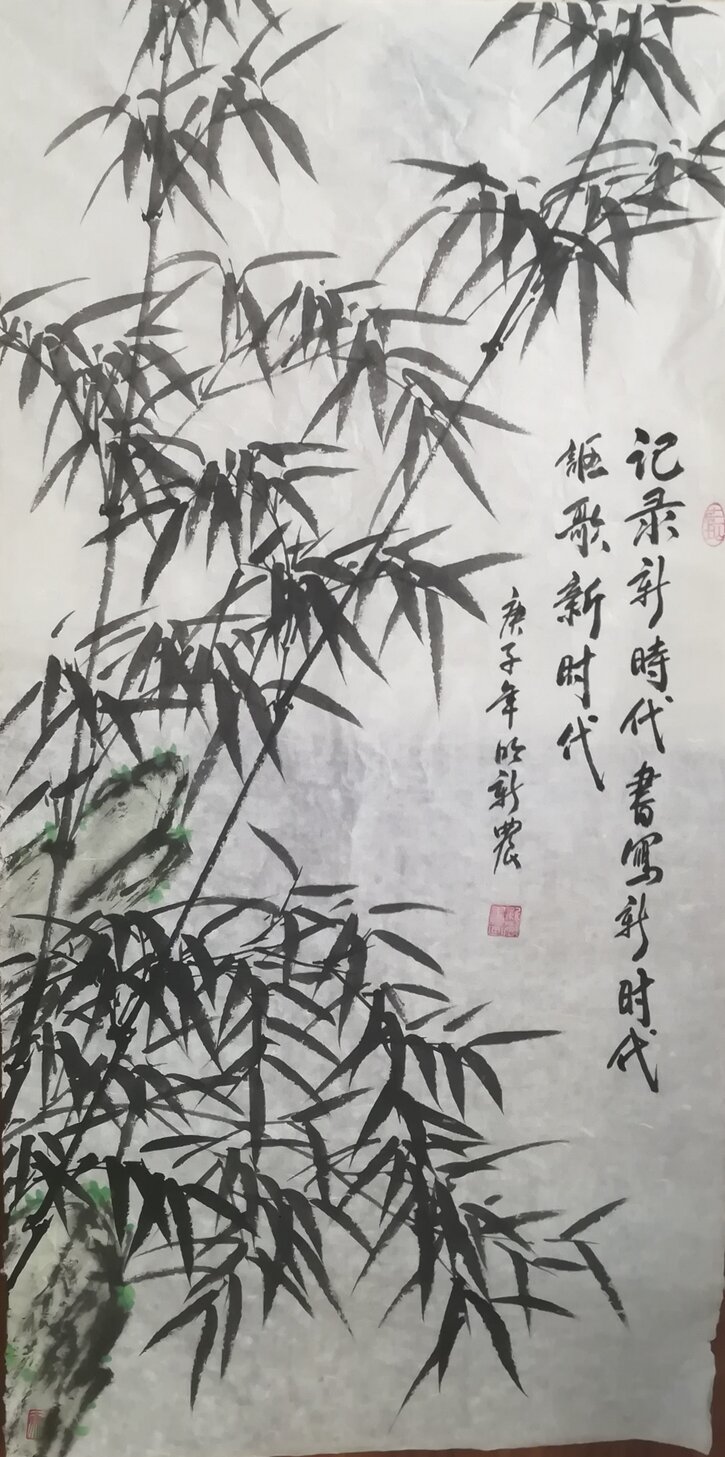 记录新時代書寫新时代
謳歌新时代
庚子年 新農